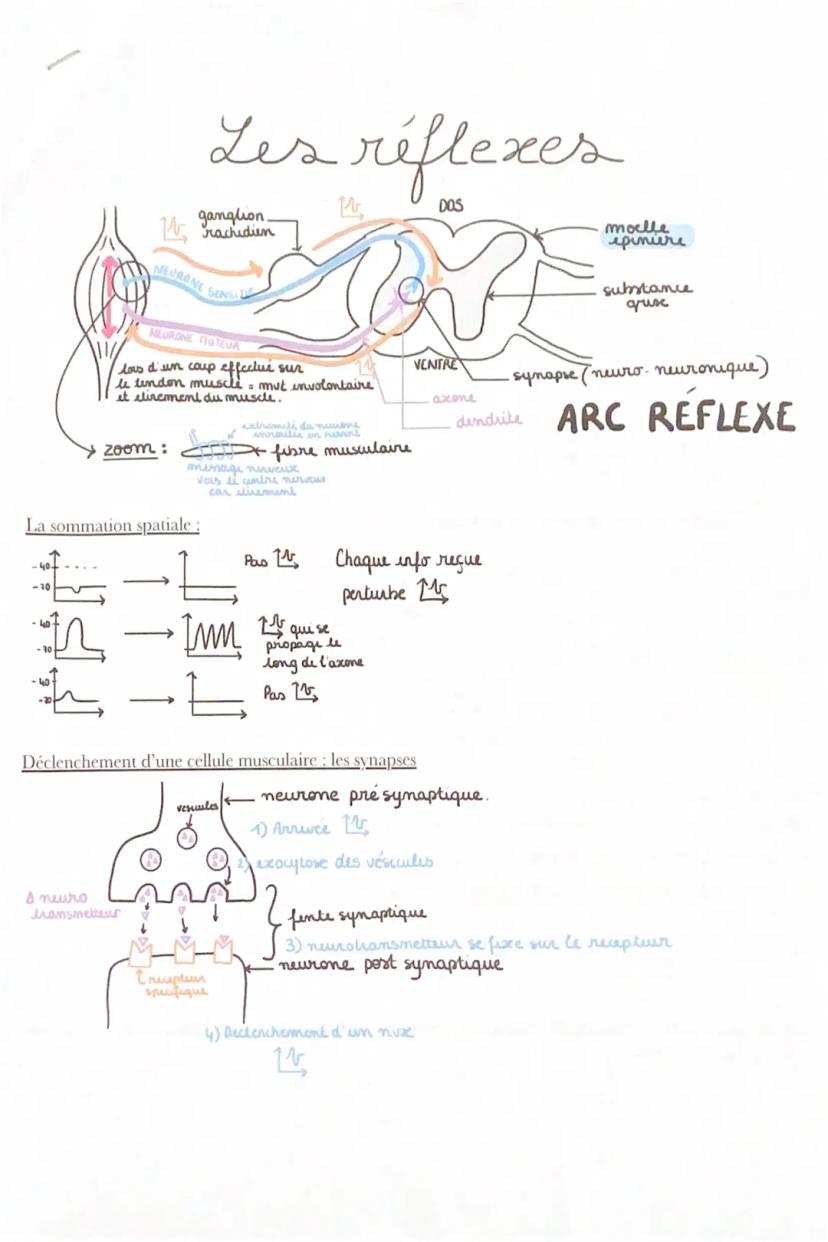 Les réflexes
DOS
ganglion
rachidien
moelle
épinière
NEURONE SENSITIF
substance
grise
NEURONE MOTEUR
VENTRE
synapse (neuro-neuronique)
lors d'un coup effectué sur
le tendon muscle = mvt involontaire
et étirement du muscle.
axone
dendrite
ARC RÉFLEXE
zoom :
extremité du neurone
enroulée en ressort
fibre musculaire
message nerveux
vers le centre nerveux
car étirement
La sommation spatiale :
-40
-70
Pas
Chaque info reçue
perturbe
-40
-70
qui se
propage le
long de l'axone
-40
-70
Pas
Déclenchement d'une cellule musculaire : les synapses
neurone présynaptique.
vésicules
1) Arrivée
2) exocytose des vésicules
Δ neuro
transmetteur
fente synaptique
3) neurotransmetteur se fixe sur le recepteur
neurone post synaptique
recepteur
spécifique
4) Declenchement d'un